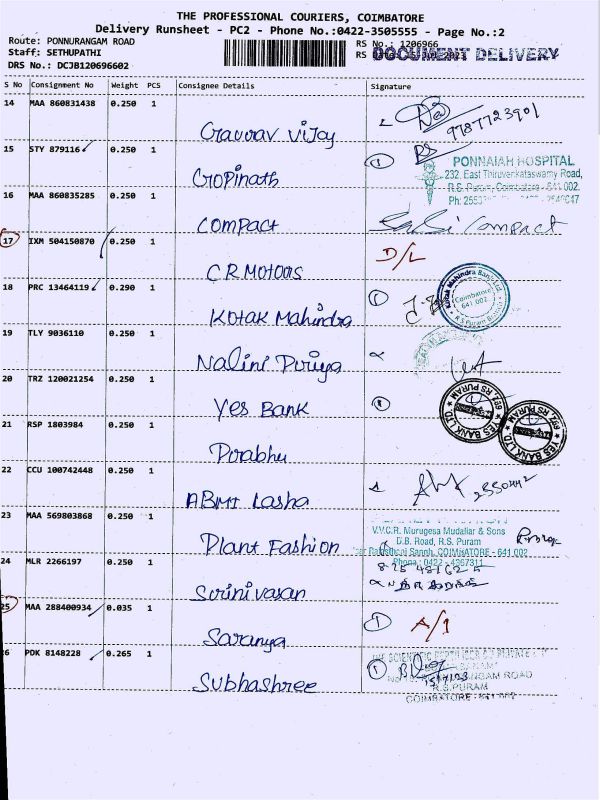 THE PROFESSIONAL COURIERS, COIMBATORE
Delivery Runsheet - PC2 - Phone No.:0422-3505555 - Page No.:2
Route: PONNURANGAM ROAD
RS No.: 1206966
Staff: SETHUPATHI
RS
DOCUMENT DELIVERY
DRS No.: DCJB120696602
S No Consignment No Weight PCS Consignee Details Signature
14 MAA 860831438 0.250 1
Gaurav Vijay
9787723901
15 STY 879116 0.250 1
Gopinath
PONNAIAH HOSPITAL
232, East Thiruvenkataswamy Road,
R.S. Puram, Coimbatore - 641 002.
16 MAA 860835285 0.250 1
Compact
Compact
17 IXM 504150870 0.250 1
CR Motors
D/L
18 PRC 13464119 0.290 1
Kotak Mahindra
Kotak Mahindra Bank Ltd
Coimbatore
641 002
R.S Puram Branch
19 TLY 9036110 0.250 1
Nalini Piriya
20 TRZ 120021254 0.250 1
Yes Bank
YES BANK LTD
697, RS PURAM
YES BANK LTD
697, RS PURAM
21 RSP 1803984 0.250 1
Prabhu
22 CCU 100742448 0.250 1
ABMI Lasha
23 MAA 569803868 0.250 1
Plant Fashion
V.V.C.R. Murugesa Mudaliar & Sons
D.B. Road, R.S. Puram
COIMBATORE - 641 002
Phone: 0422 - 4367311
24 MLR 2266197 0.250 1
Srinivasan
25 MAA 288400934 0.035 1
Saranya
A/1
26 PDK 8148228 0.265 1
Subhashree
R.S.PURAM
COIMBATORE - 641 002